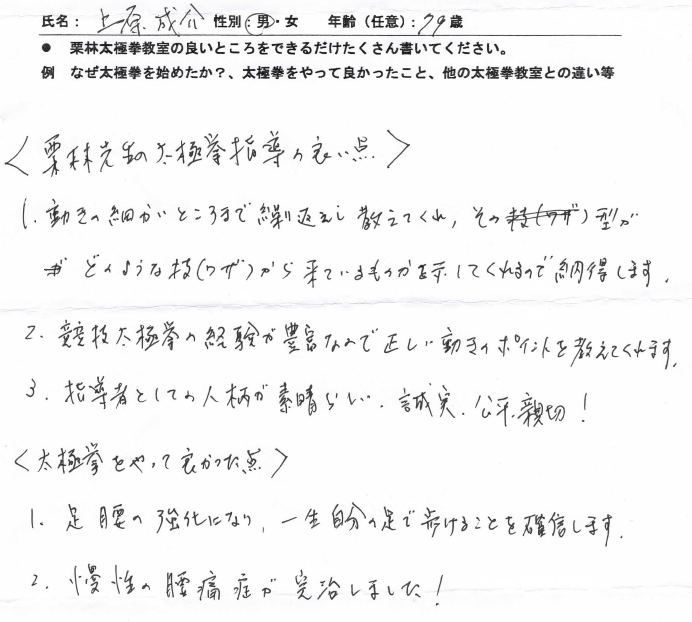 氏名： 上原成介 性別：男・女 年齢（任意）：79歳
● 栗林太極拳教室の良いところをできるだけたくさん書いてください。
例 なぜ太極拳を始めたか？、太極拳をやって良かったこと、他の太極拳教室との違い等
〈栗林先生の太極拳指導の良い点〉
1. 動きの細かいところまで繰り返えし教えてくれ，その技(ワザ)型が
どのような技(ワザ)から来ているものかを示してくれるので納得します．
2. 競技太極拳の経験が豊富なので正しい動きのポイントを教えてくれます．
3. 指導者としての人柄が素晴らしい．誠実．公平．親切！
〈太極拳をやって良かった点〉
1. 足腰の強化になり，一生自分の足で歩けることを確信します．
2. 慢性の腰痛症が完治しました！